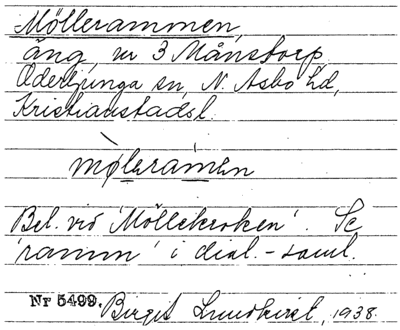 Möllerammen,
äng, nr 3 Månstorp,
Oderljunga sn, N. Åsbo hd,
Kristianstads l.
mølerámen
Bel. vid 'Möllekroken'. Se
'ramm' i dial.-saml.
Nr 5499. Birgit Lundkvist, 1938.